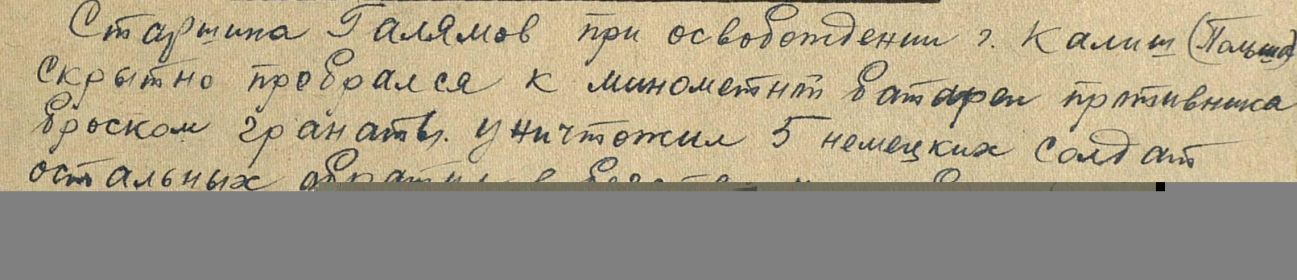 Старшина Галямов при освобождении г. Калиш (Польша)
скрытно пробрался к минометной батареи противника
броском гранаты. уничтожил 5 немецких солдат
остальных обратил в бегство